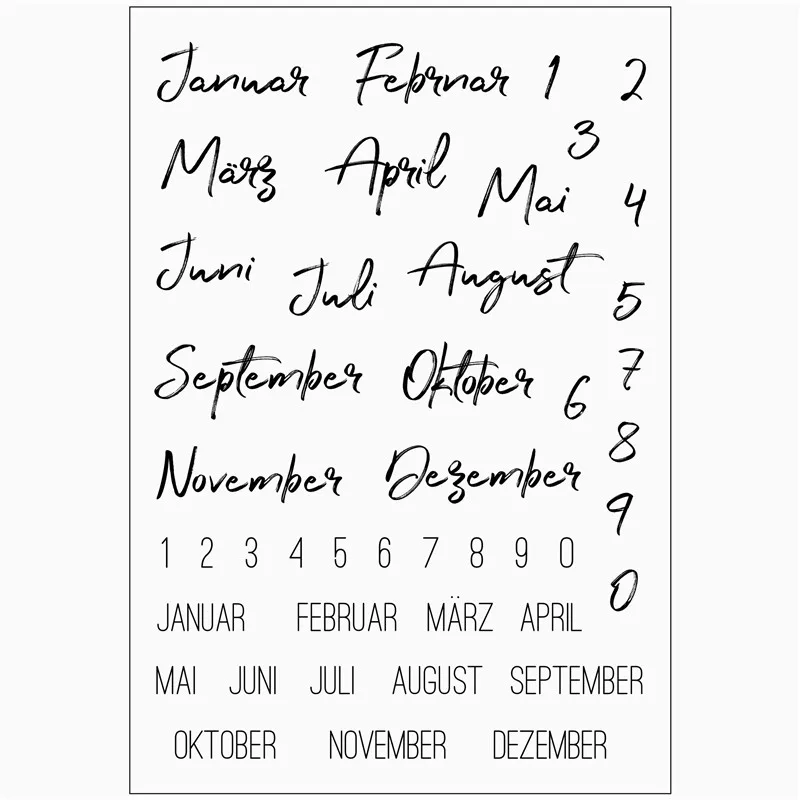 Januar Februar 1 2
3
März April Mai 4
Juni Juli August 5
September Oktober 6 7
8
November Dezember 9
1 2 3 4 5 6 7 8 9 0
0
JANUAR FEBRUAR MÄRZ APRIL
MAI JUNI JULI AUGUST SEPTEMBER
OKTOBER NOVEMBER DEZEMBER